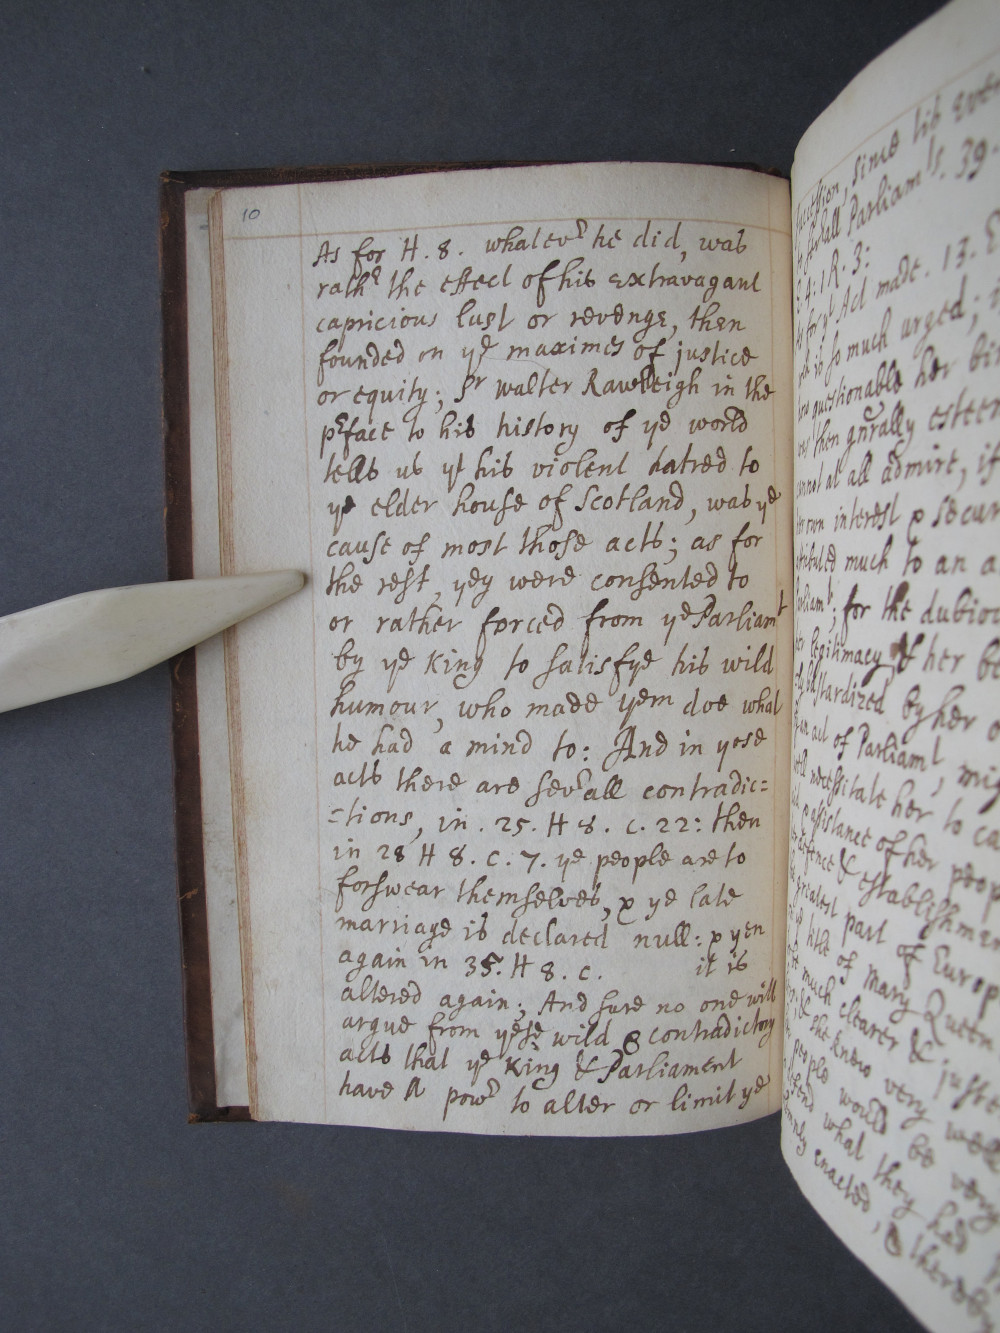 10
As for H. 8. whatevr he did, was
rathr the effect of his extravagant
capricious lust or revenge, then
founded on ye maximes of justice
or equity; Sr walter Rawleigh in the
prface to his history of ye world
tells us yt his violent hatred to
ye elder house of Scotland, was ye
cause of most those acts; as for
the rest, yey were consented to
or rather forced from ye Parliamt
by ye King to satisfye his wild
humour, who made yem doe what
he had a mind to: And in yese
acts there are sevrall contradic=
=tions, in . 25. H 8. c. 22: then
in 28 H 8. c. 7. ye people are to
forswear themselves, & ye late
marriage is declared null: & yen
again in 35. H 8. c. it is
altered again; And sure no one will
argue from yese wild & contradictory
acts that ye King & Parliament
have A powr to alter or limit ye
since his
Parliamts. 39.
E. 4: 1 R. 3:
for yt Act made . 13. E
is so much urged;
questionable her
then gnrally esteem
at all admire, if
own interest & secur
much to an a
Parliamt; for the dubio
legitimacy, if her
bastardized by her
an act of Parliamt, mig
necessitate her to ca
assistance of her peop
defence & establishmen
greatest part of Europ
title of Mary Queen
much clearer & juste
& she knew very well
people would be very
defend what they had
enacted, & thereby